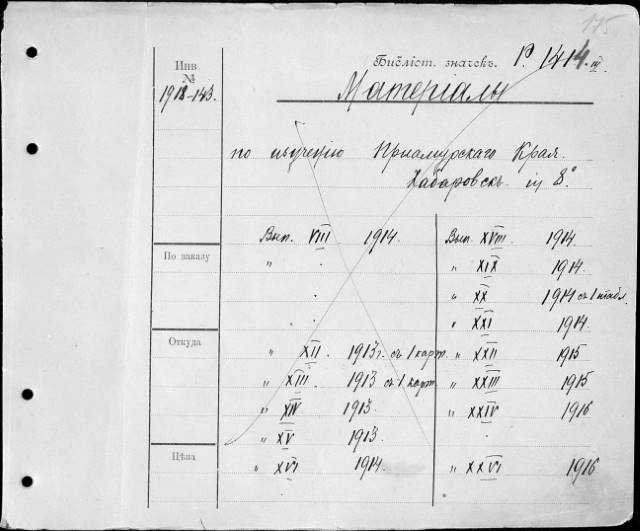 175
Инв.
№
1918-143.
Библіот. значекъ. Р. 1414. III.
Матеріалы
по изученію Пріамурскаго Края.
Хабаровскъ. in 8.°
Вып. VIII 1914.
"
"
XII. 1913 г. съ 1 карт.
" XIII. 1913 съ 1 карт.
" XIV 1913.
" XV 1913.
" XVI 1914.
Вып. XVIII 1914.
" XIX 1914.
" XX 1914 съ 1 табл.
" XXI 1914.
" XXII 1915
" XXIII 1915
" XXIV 1916
" XXVI 1916
По заказу
Откуда
Цѣна